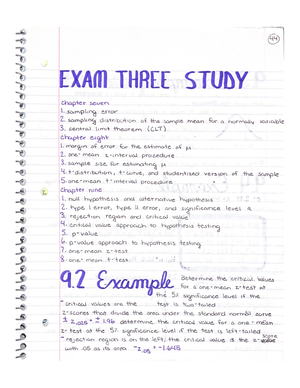 44
EXAM THREE STUDY
chapter seven
1. sampling error
2. sampling distribution of the sample mean for a normally variable
3. central limit theorem (CLT)
chapter eight
1. margin of error for the estimate of μ
2. one-mean z-interval procedure
3. sample size for estimating μ
4. t-distribution, t-curve, and studentized version of the sample
5. one-mean t-interval procedure
chapter nine
1. null hypothesis and alternative hypothesis
2. type I error, type II error, and significance level α
3. rejection region and critical value
4. critical value approach to hypothesis testing
5. p-value
6. p-value approach to hypothesis testing
7. one-mean z-test
8. one-mean t-test
9.2 Example
determine the critical values
for a one-mean z-test at
the 5% significance level if the
test is two-tailed
critical values are the
z-scores that divide the area under the standard normal curve
± z.025 = ± 1.96
determine the critical value for a one-mean
z-test at the 5% significance level if the test is left-tailed
rejection region is on the left, the critical value is the z-score
with .05 as its area -z.05 = -1.645